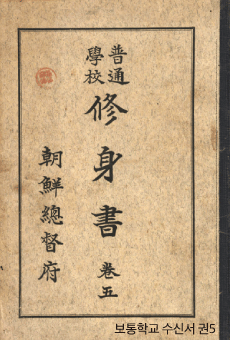 普通
學校
修身書
卷五
朝鮮總督府
보통학교 수신서 권5